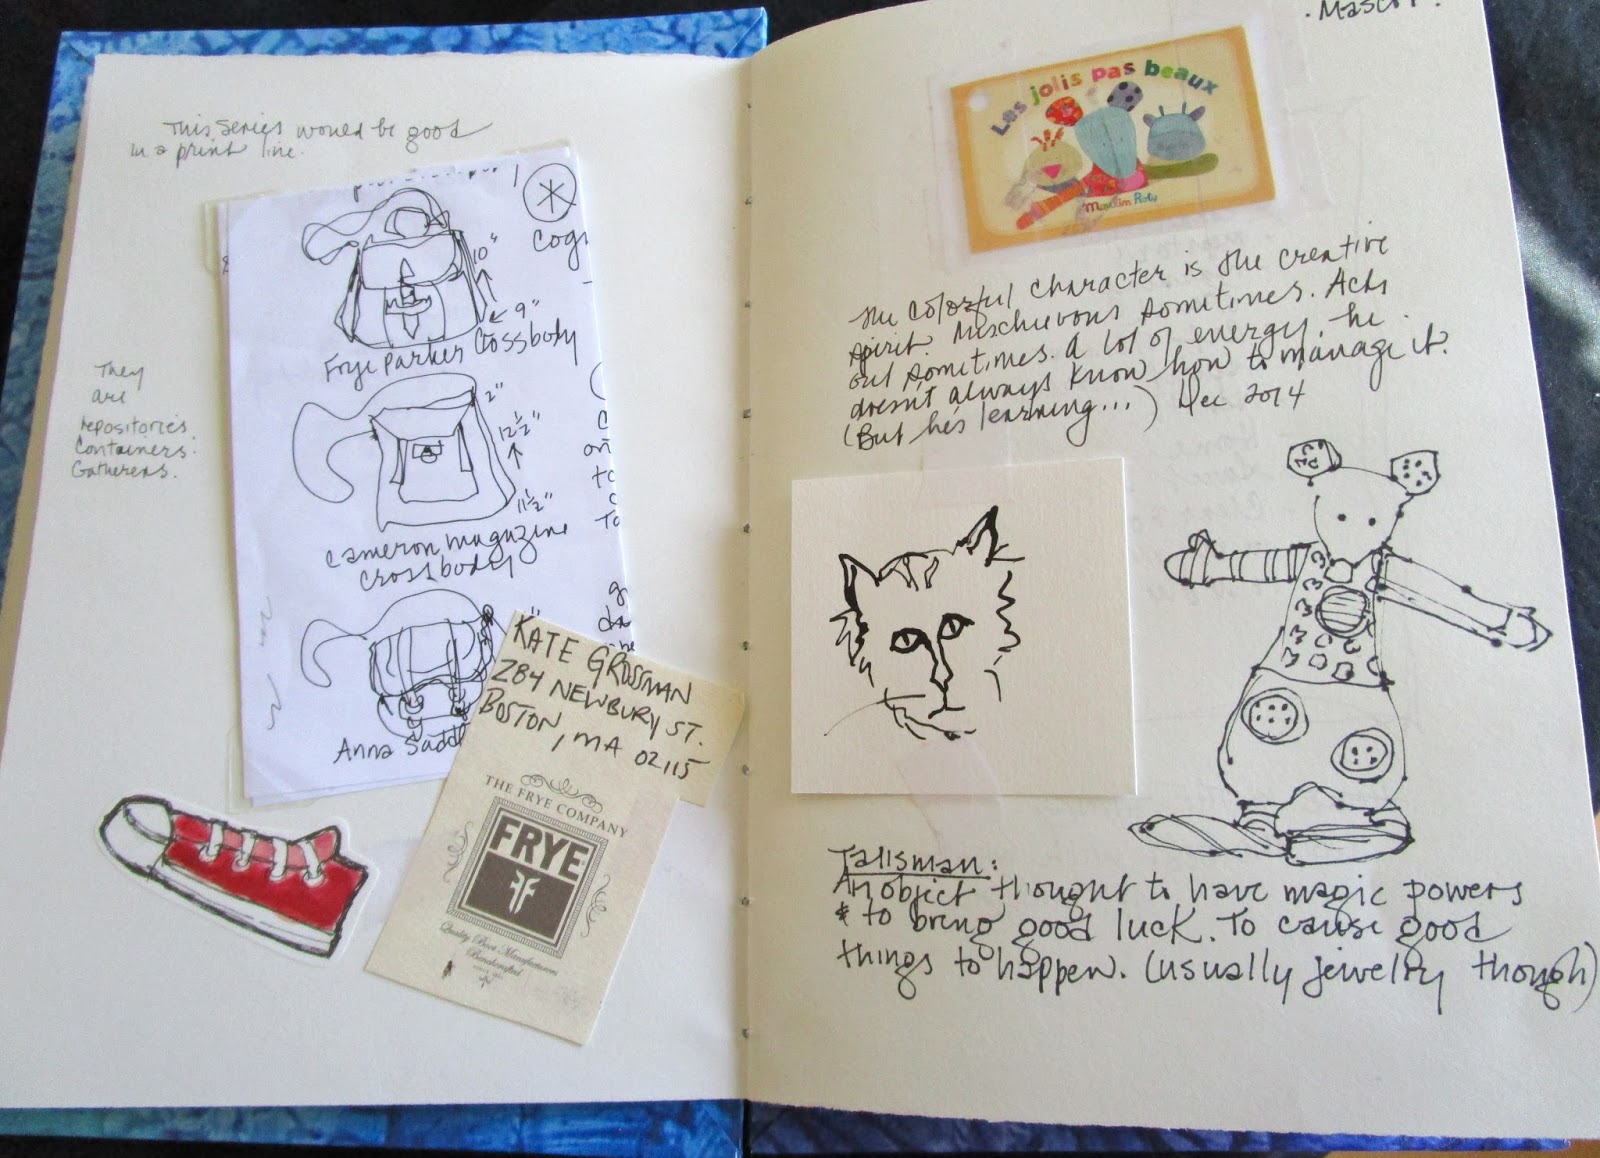 This series would be good
in a print line.
Cogn
10"
9"
Frye Parker Crossbody
They
are
repositories.
Containers.
Gatherers.
2"
12½"
11½"
Cameron magazine
crossbody
Anna Saddl
KATE GROSSMAN
284 NEWBURY ST.
BOSTON, MA 02115
THE FRYE COMPANY
FRYE
Quality Boot Manufacturers
Benchcrafted
.Mascot.
Les jolis pas beaux
Moulin Roty
The colorful character is the creative
spirit. Mischievous sometimes. Acts
out sometimes. A lot of energy, he
doesn't always know how to manage it.
(But he's learning...) Dec 2014
Talisman:
An object thought to have magic powers
& to bring good luck. To cause good
things to happen. (usually jewelry though)